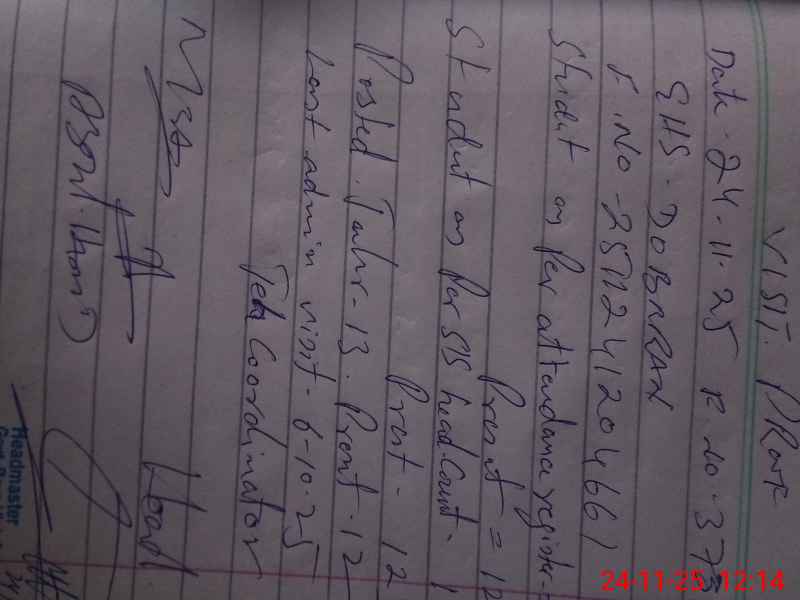 VISIT. PROF
Date. 24.11.25 F. NO. 373
GHS. DOBARAN
F. NO - 2511241204661
Student as Per attendance register -
Present = 12
Student as Per SIS head Count -
Prent - 12
Posted. Tahr - 13. Prent - 12
Last admin visit - 6-10-25
Tech Coordinator
Head
Headmaster
24-11-25 12:14